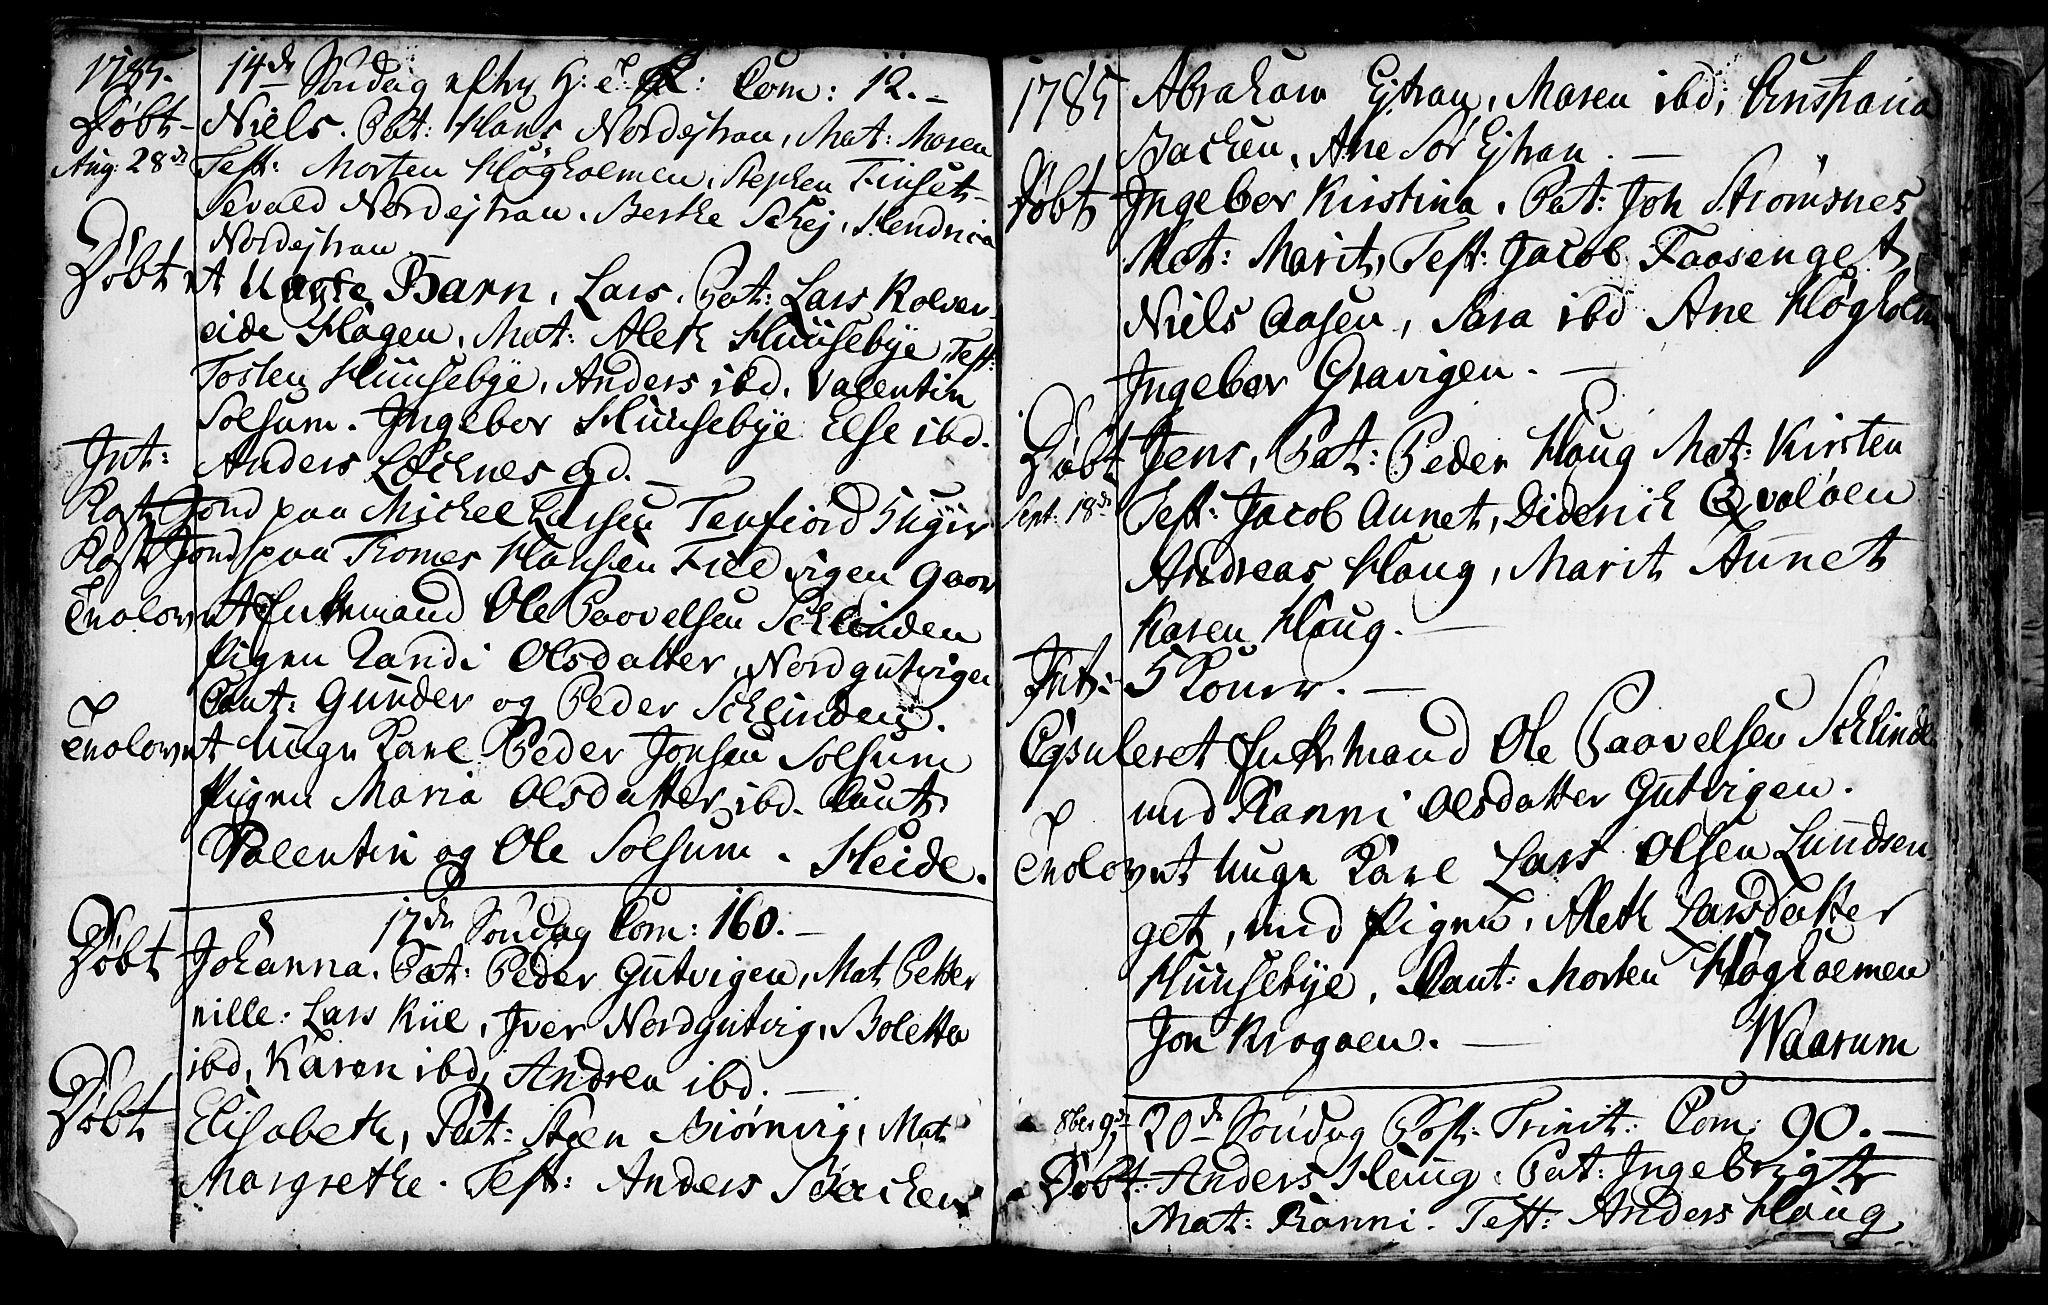 1785.
14de Söndag efter H: T: Com: 12.-
Döbt- Niels. Pat: Hans Nordejtran, Mat: Maren
Aug: 28de Test: Morten Høgholmen, Stephen Finset-
Sevald Nordejtran. Berthe Schej, Hendrica
Nordejtran
Döbt et Uægte Barn, Lars. Pat: Lars Kolver-
eide Hagen, Mat: Aleth Huusebye, Test:
Tosten Huusebye, Anders ibd. Valentin
Solsum. Ingebor Huusebye Else ibd.
Int: Anders Lechnes
Kast Jord paa Michel Larsen Tenfiord
Kast Jord paa Thomes Hansen Fieldvigen
Trolovet Enkemand Ole Paavelsen Schlinden
Pigen Randi Olsdatter, Nordgutvigen
Caut: Gunder og Peder Schlinden.
Trolovet Unge Karl Peder Jonsen Solsum
Pigen Maria Olsdatter ibd. Caut:
Valentin og Ole Solsum. Heide.
17de Söndag Com: 160.-
Döbt Johanna. Pat: Peder Gutvigen, Mat Petter
nille. Lars Kiie, Iver Nordgutvig, Boletta
ibd, Karen ibd, Andrea ibd.-
Döbt Elisabeth, Pat: Steen Biörnvig, Mat
Margrethe. Test: Anders Bachen
1785 Abraham Ejtran, Maren ibd, Christiania
Bachen, Ane Sör Ejtran.-
Döbt Ingebor Kirstina. Pat: Joh Strömsnes
Mat: Marit, Test: Jacob Faasenget
Niels Aasen, Sara ibd Ane Høgholm
Ingebor Gravigen.-
Döbt Jens, Pat: Peder Haug Mat: Kirsten
Sept: 18de Test: Jacob Aunet, Diderich Qvaløen
Andreas Haug, Marit Aunet
Karen Haug.-
Int: 5 Koner.-
Copuleret Enkemand Ole Paavelsen Schlinde
med Ranni Olsdatter Gutvigen.
Trolovet Unge Karl Lars Olsen Lundsen
get, med Pigen, Aleth Larsdatter
Huusebye, Caut: Morten Høgholmen
Jon Kragøen.- Waarum
8ber 9de 20de Söndag Post: Trinit: Com: 90.-
Döbt: Anders Haug. Pat: Ingebrigt
Mat: Ranni. Test: Anders Haug